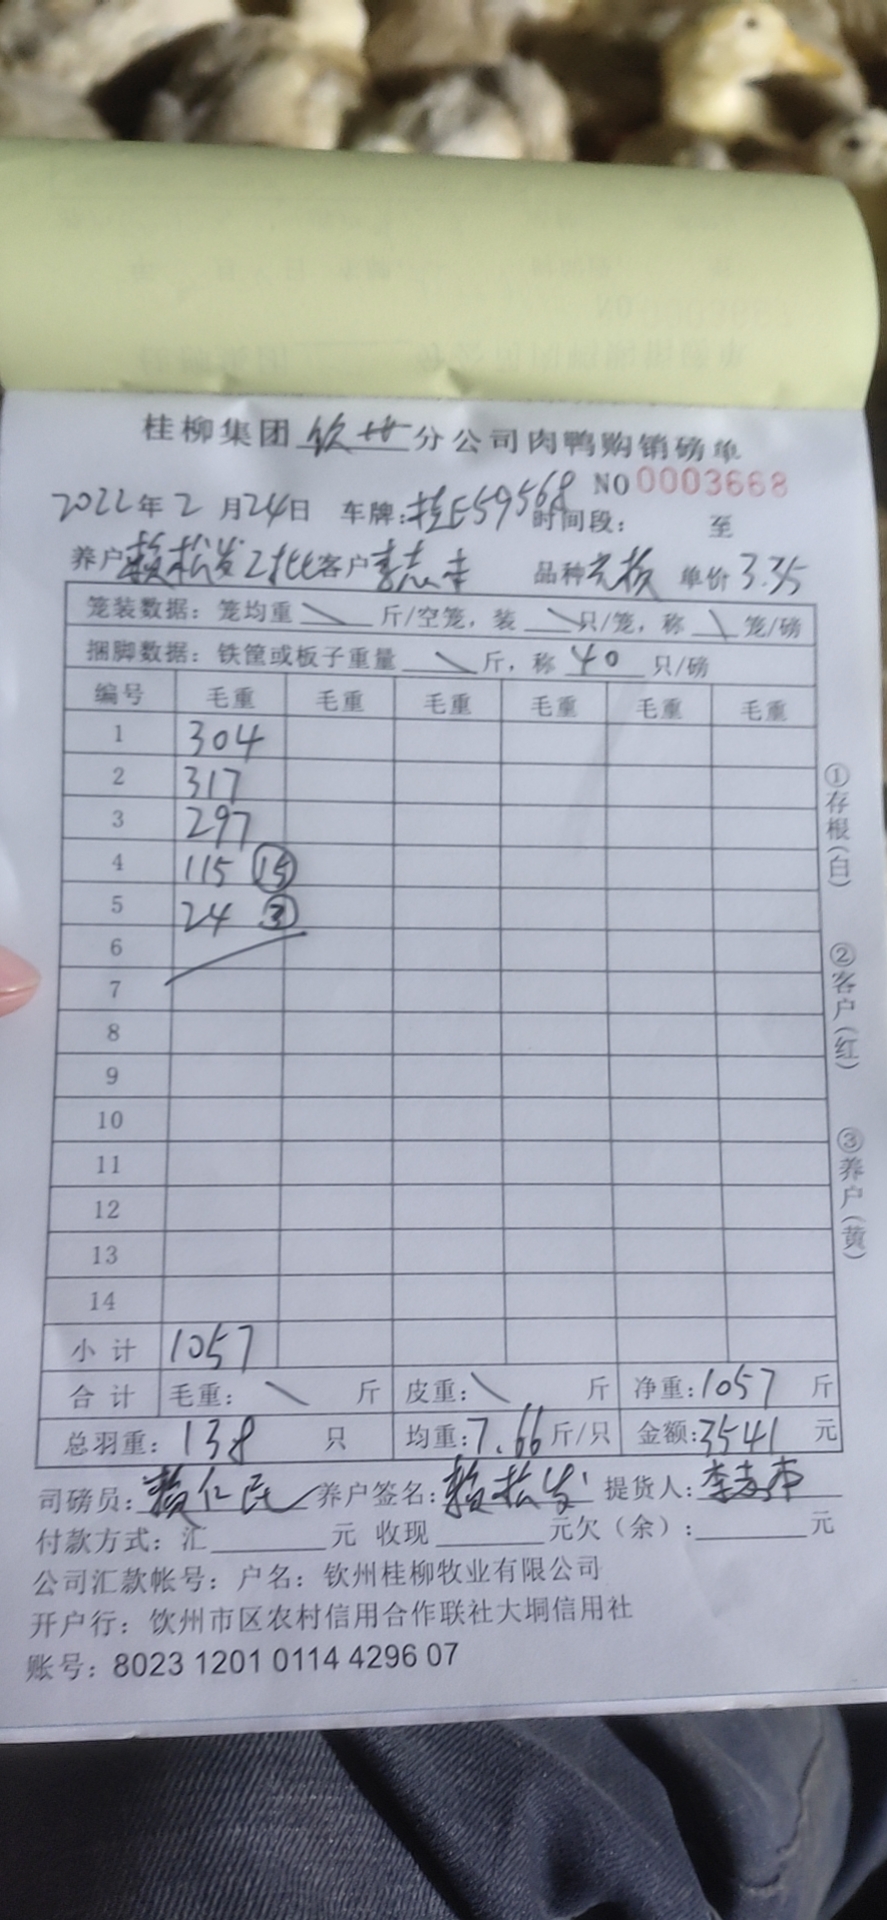 桂柳集团 钦州 分公司肉鸭购销磅单
NO 0003668
2022年2月24日 车牌:桂E59568 时间段: 至
养户 赖松发2批 客户 李志 品种 单价 3.35
笼装数据：笼均重 \ 斤/空笼，装 \ 只/笼，称 \ 笼/磅
捆脚数据：铁筐或板子重量 \ 斤，称 40 只/磅
编号 毛重 毛重 毛重 毛重 毛重 毛重
1 304
2 317
3 297
4 115 ⑮
5 24 ③
6
7
8
9
10
11
12
13
14
小计 1057
合计 毛重： \ 斤 皮重： \ 斤 净重：1057 斤
总羽重：138 只 均重：7.66 斤/只 金额：3541 元
司磅员：赖仁民 养户签名：赖松发 提货人：李志
付款方式：汇 元 收现 元欠（余）： 元
公司汇款帐号：户名：钦州桂柳牧业有限公司
开户行：饮州市区农村信用合作联社大垌信用社
账号：8023 1201 0114 4296 07
①存根(白)
②客户(红)
③养户(黄)